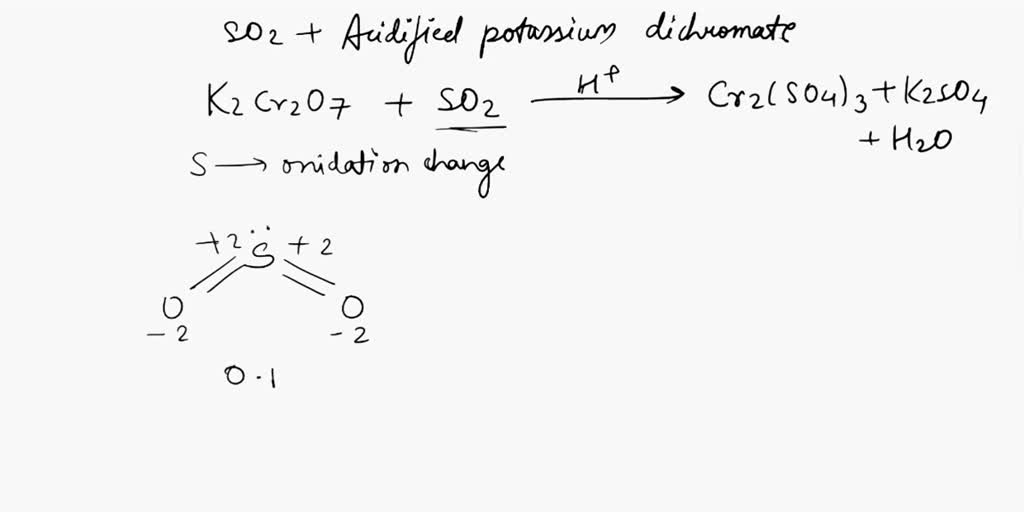 SO2 + Acidified potassium dichromate
K2Cr2O7 + SO2 H+ → Cr2(SO4)3 + K2SO4
+ H2O
S → onidation change
+2 S +2
O O
-2 -2
O.1